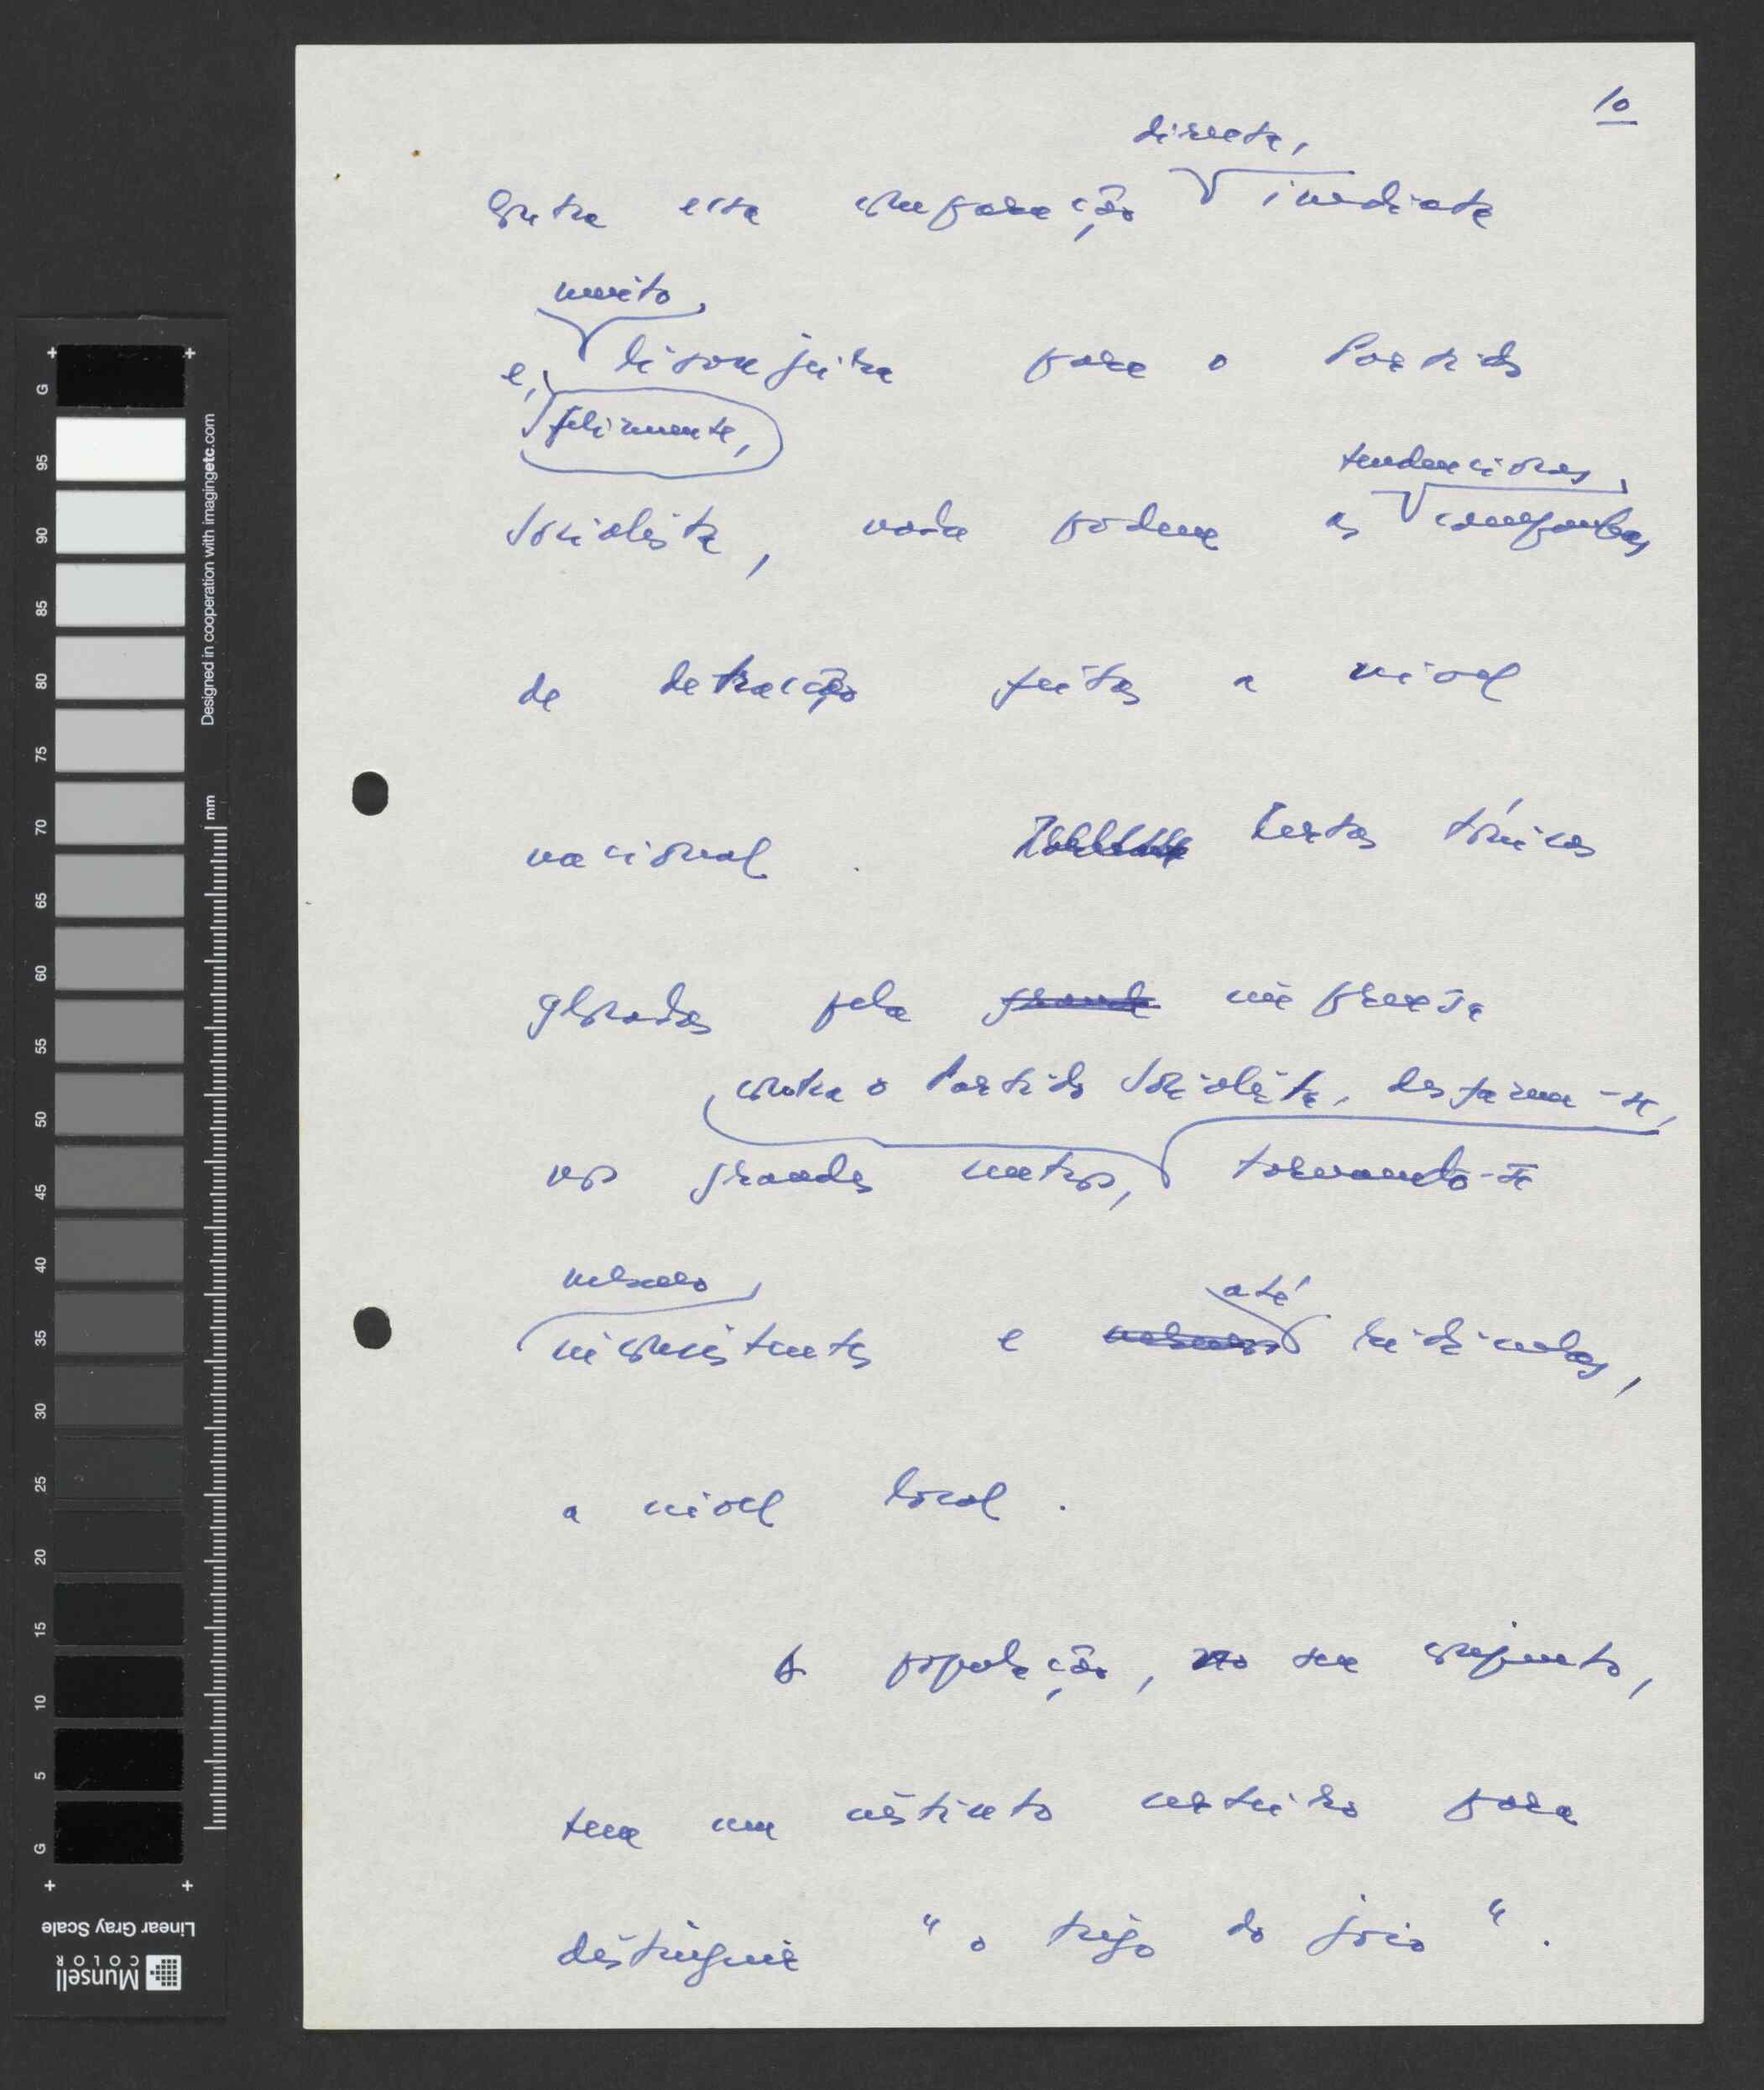 10
directa,
Contra essa comparação imediata
muito
e, lisonjeira para o Partido
felizmente,
tendenciosas
Socialista, nada podem as campanhas
de detracção feitas a nível
nacional. Certas tónicas
glosadas pela grande imprensa
contra o Partido Socialista, desfazem-se,
nos grandes centros, tornando-se
mesmo
até
inconsistentes e mesmo ridículas,
a nível local.
A população, no seu conjunto,
tem um instinto certeiro para
distinguir "o trigo do joio".
G
95
90
85
80
75
70
65
60
55
50
45
40
35
30
25
20
15
10
5
G
mm
Designed in cooperation with imagingetc.com
Linear Gray Scale
Munsell
COLOR